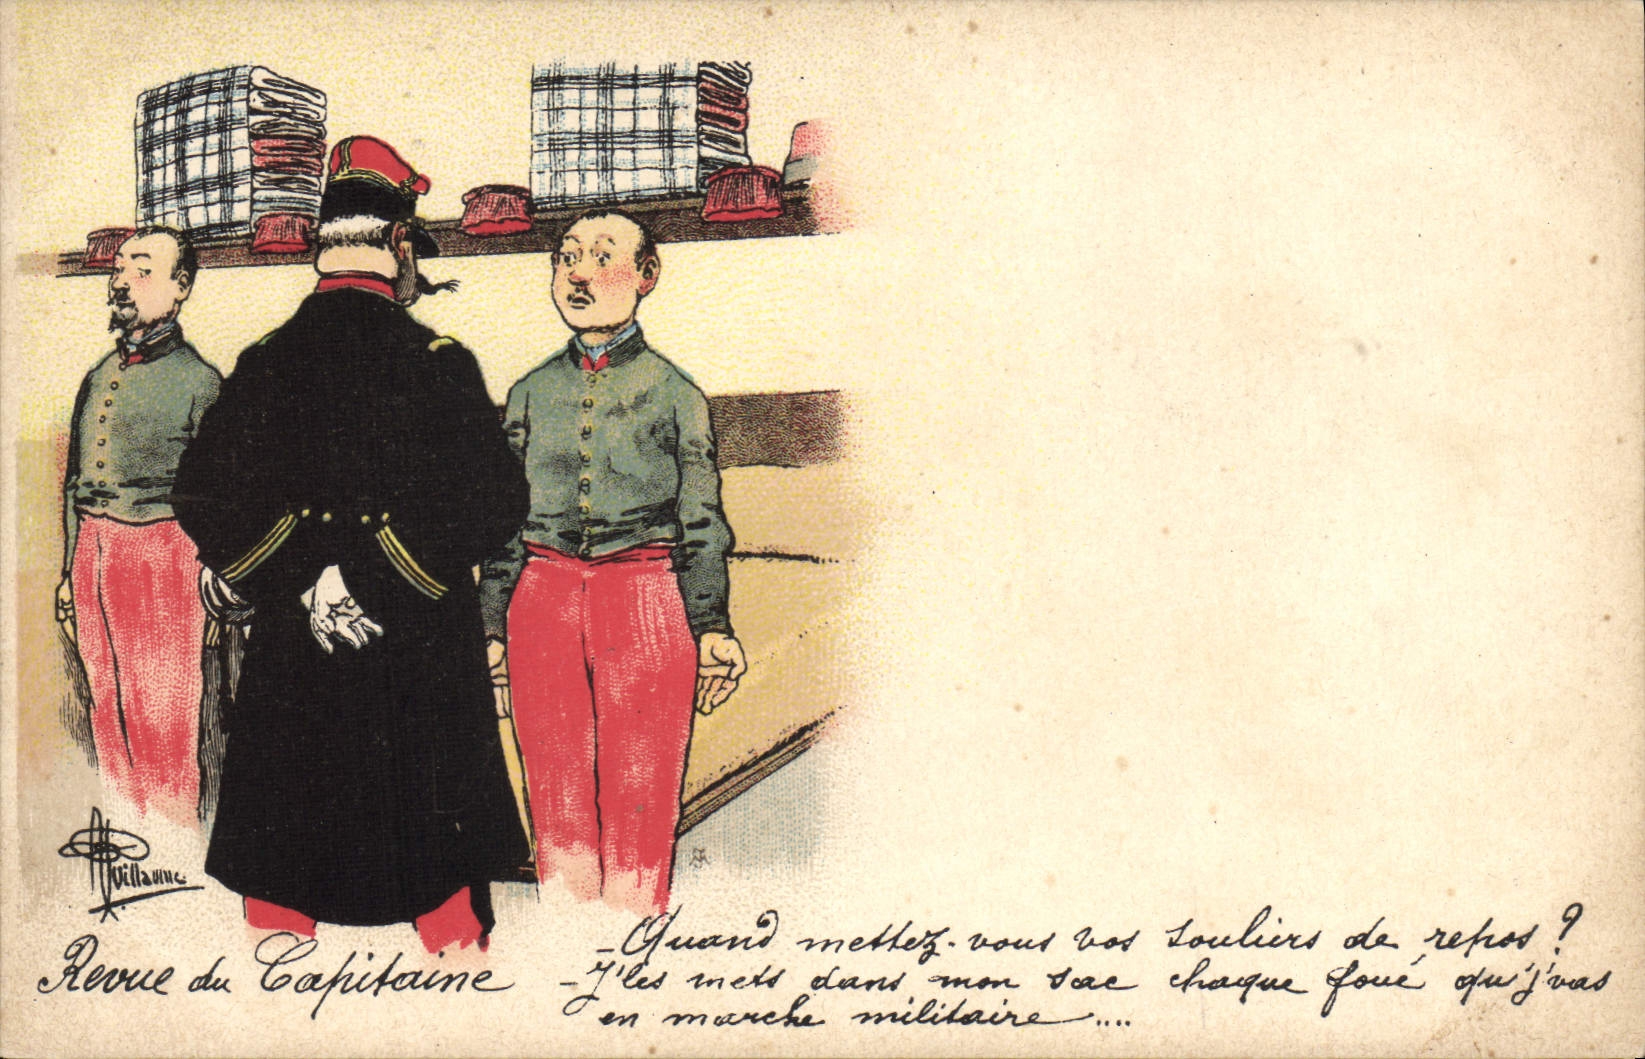 Guillaume
Revue du Capitaine
- Quand mettez-vous vos souliers de repos ?
- J'les mets dans mon sac chaque foué qu'j'vas
en marche militaire....